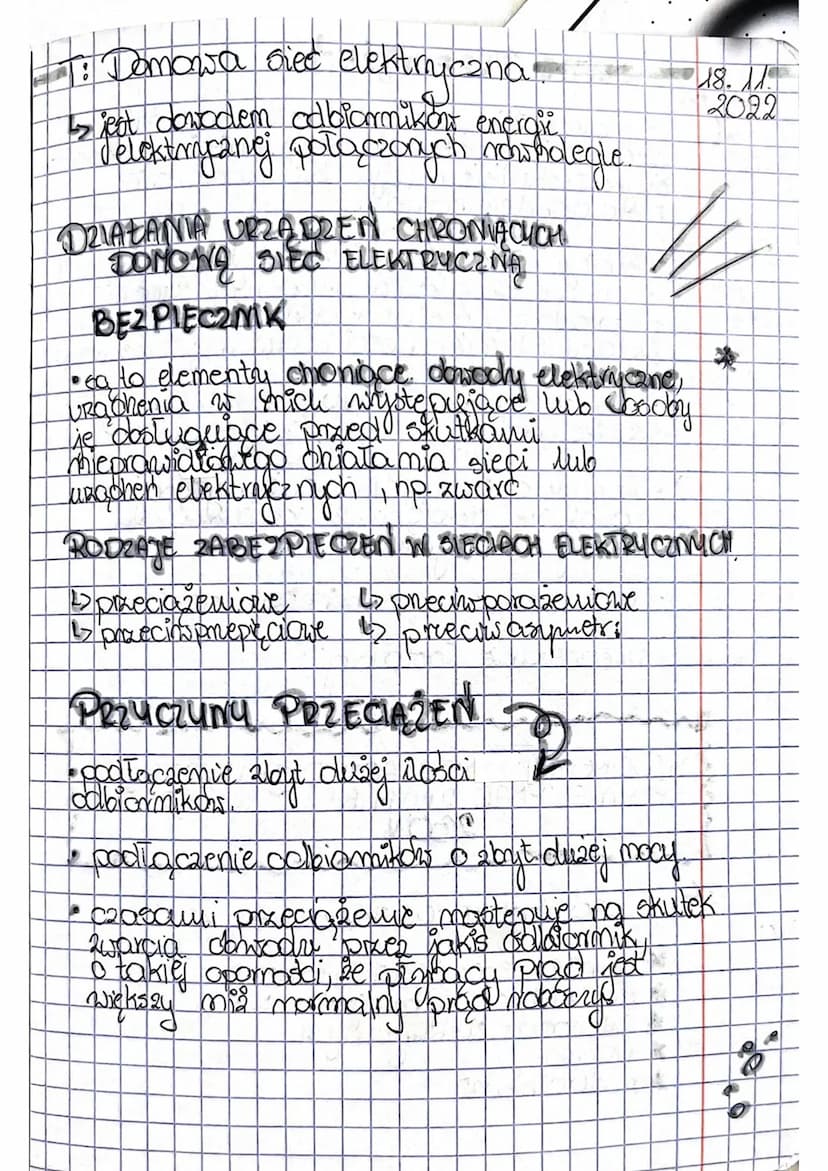 T: Domowa sieć elektryczna
18. 11. 2022
↳ jest obwodem odbiorników energii
elektrycznej połączonych równolegle.
DZIAŁANIA URZĄDZEŃ CHRONIĄCYCH
DOMOWĄ SIEĆ ELEKTRYCZNĄ
BEZPIECZNIK
• są to elementy chroniące obwody elektryczne,
urządzenia w nich występujące lub osoby
je obsługujące przed skutkami
nieprawidłowego działania sieci lub
urządzeń elektrycznych, np. zwarć
RODZAJE ZABEZPIECZEŃ W SIECIACH ELEKTRYCZNYCH
↳ przeciążeniowe ↳ przeciwporażeniowe
↳ przeciwprzepięciowe ↳ przeciwasymetri
PRZYCZYNY PRZECIĄŻEŃ
• podłączenie zbyt dużej ilości
odbiorników.
• podłączenie odbiorników o zbyt dużej mocy
• czasami przeciążenie następuje na skutek
zwarcia obwodu przez jakiś odbiornik,
o takiej oporności, że płynący prąd jest
większy niż normalny prąd roboczy